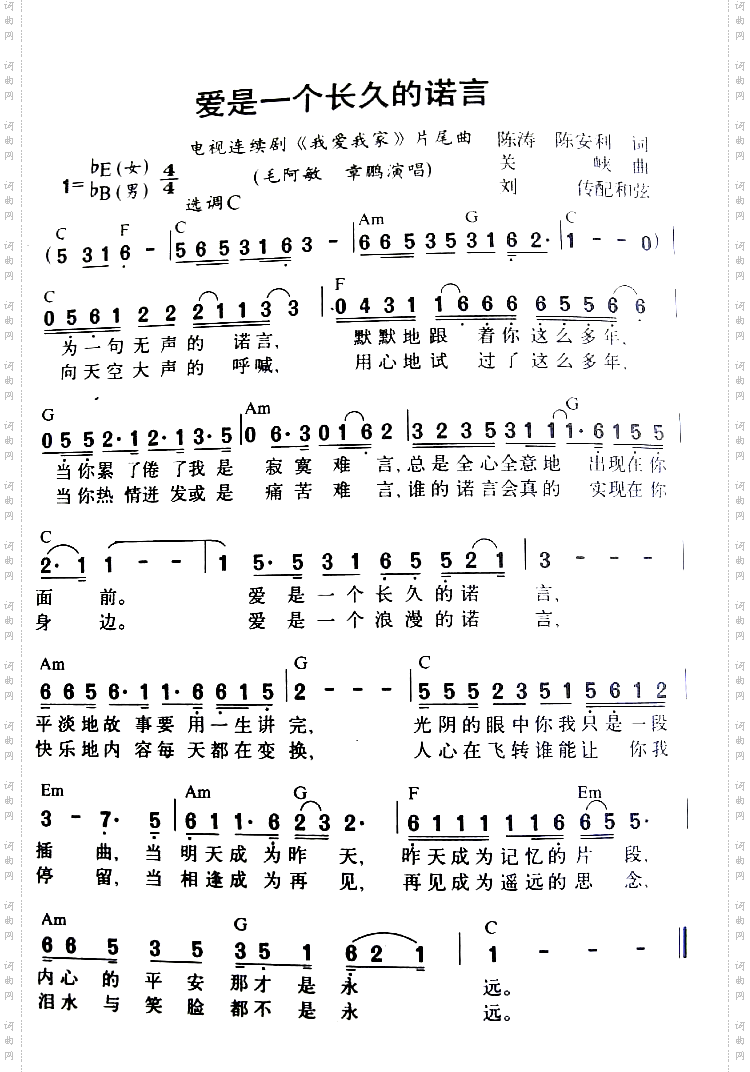 爱是一个长久的诺言
电视连续剧《我爱我家》片尾曲 陈涛 陈安利 词
1= ♭E(女) ♭B(男) 4/4 (毛阿敏 章鹏演唱) 关 峡 曲
选调C 刘 传配和弦
C F C Am G C
(5 3 1 6 - | 5 6 5 3 1 6 3 - | 6 6 5 3 5 3 1 6 2· | 1 - - 0) |
C F
0 5 6 1 2 2 2 1 1 3 3 | 0 4 3 1 1 6 6 6 6 5 5 6 6 |
为一句无声的 诺言, 默默地跟 着你这么多年,
向天空大声的 呼喊, 用心地试 过了这么多年,
G Am G
0 5 5 2·1 2·1 3·5 | 0 6·3 0 1 6 2 | 3 2 3 5 3 1 1 1·6 1 5 5 |
当你累了倦了我是 寂寞难 言,总是全心全意地 出现在你
当你热情迸发或是 痛苦难 言,谁的诺言会真的 实现在你
C
2·1 1 - - | 1 5·5 3 1 6 5 5 2 1 | 3 - - |
面 前。 爱是一个长久的诺 言,
身 边。 爱是一个浪漫的诺 言,
Am G C
6 6 5 6·1 1·6 6 1 5 | 2 - - - | 5 5 5 2 3 5 1 5 6 1 2 |
平淡地故 事要 用一生讲 完, 光阴的眼中你我只是一段
快乐地内 容每 天都在变 换, 人心在飞转谁能让 你我
Em Am G F Em
3 - 7· 5 | 6 1 1·6 2 3 2· | 6 1 1 1 1 1 6 6 5 5· |
插 曲, 当 明天成为昨 天, 昨天成为记忆的片 段,
停 留, 当 相逢成为再 见, 再见成为遥远的思 念,
Am G C
6 6 5 3 5 3 5 1 6 2 1 | 1 - - - ‖
内心的 平安 那才是永 远。
泪水与 笑脸 都不是永 远。
词曲网